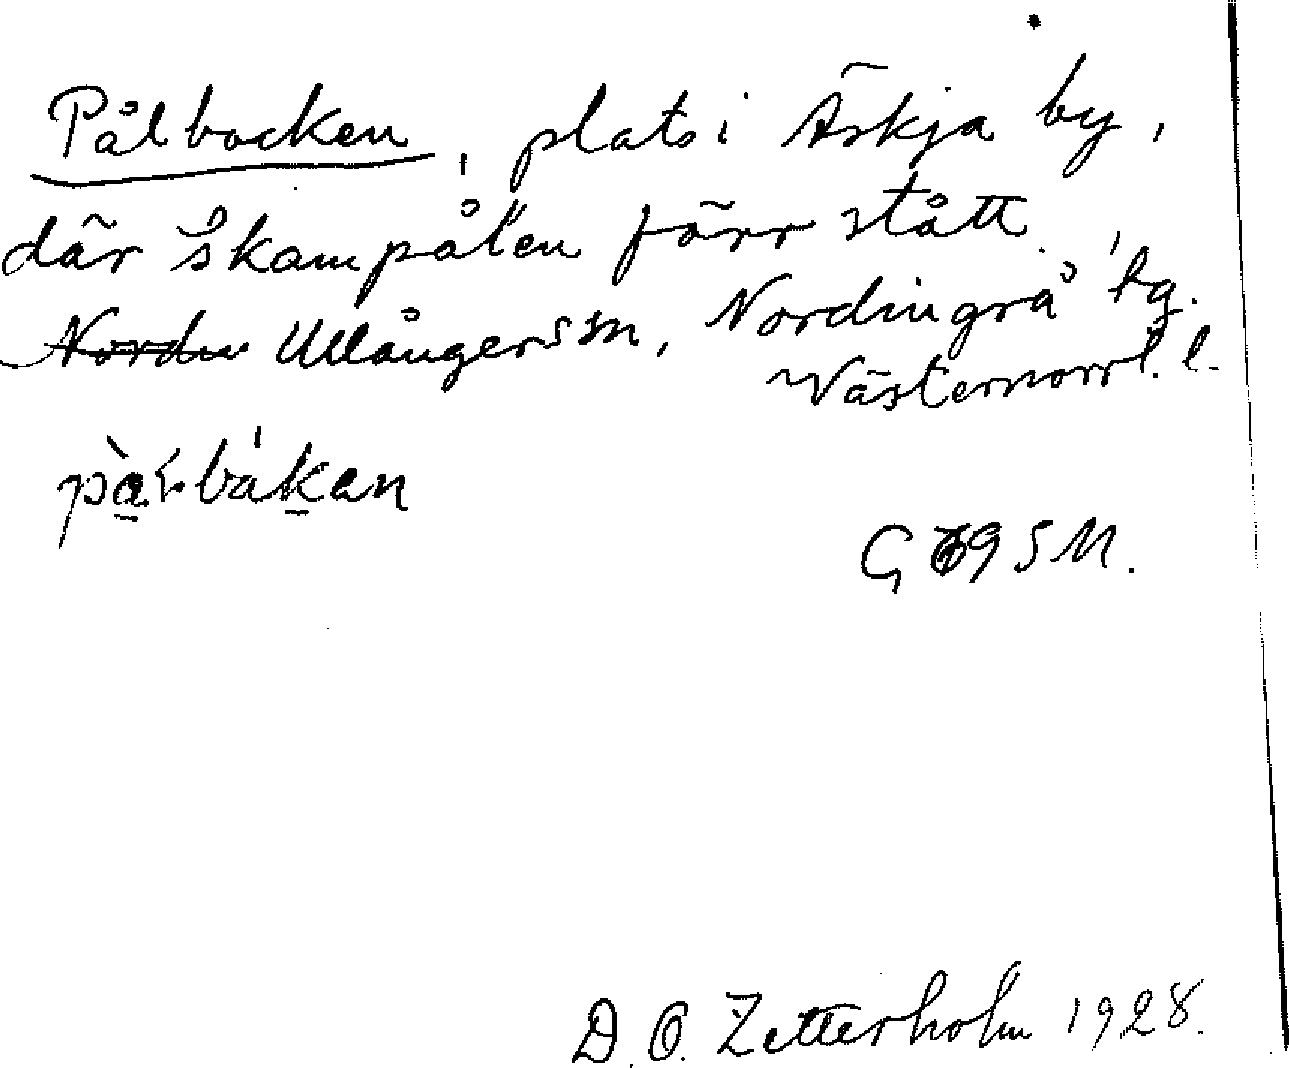 Pålbacken, plats i Äskja by,
där "skampålen" förr stått.
Nordin Ullånger sn, Nordingrå tg.
Västernorrl. l.
D. O. Zetterholm 1928.